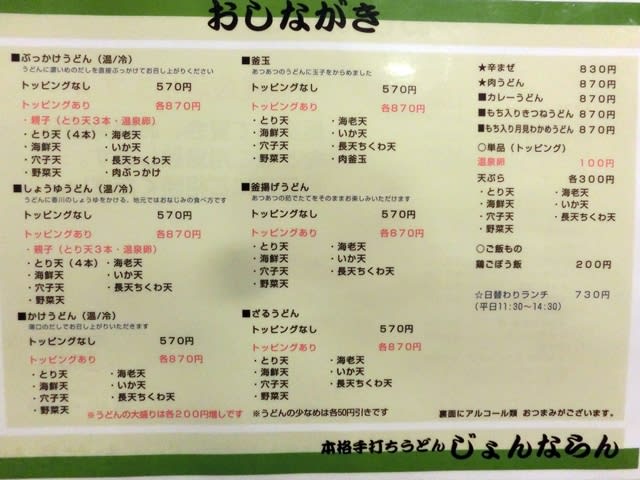 おしながき
■ぶっかけうどん（温/冷）
うどんに濃いめのだしを直接ぶっかけてお召し上がりください
トッピングなし 570円
トッピングあり 各870円
・親子（とり天３本・温泉卵）
・とり天（４本） ・海老天
・海鮮天 ・いか天
・穴子天 ・長天ちくわ天
・野菜天 ・肉ぶっかけ
■しょうゆうどん（温/冷）
うどんに香川のしょうゆをかける、地元ではおなじみの食べ方です
トッピングなし 570円
トッピングあり 各870円
・親子（とり天３本・温泉卵）
・とり天（４本） ・海老天
・海鮮天 ・いか天
・穴子天 ・長天ちくわ天
・野菜天
■かけうどん（温/冷）
薄口のだしでお召し上がりいただきます
トッピングなし 570円
トッピングあり 各870円
・とり天 ・海老天
・海鮮天 ・いか天
・穴子天 ・長天ちくわ天
・野菜天
※うどんの大盛りは各200円増しです
■釜玉
あつあつのうどんに玉子をからめました
トッピングなし 570円
トッピングあり 各870円
・とり天 ・海老天
・海鮮天 ・いか天
・穴子天 ・長天ちくわ天
・野菜天 ・肉釜玉
■釜揚げうどん
あつあつの茹でたてをそのままお楽しみいただけます
トッピングなし 570円
トッピングあり 各870円
・とり天 ・海老天
・海鮮天 ・いか天
・穴子天 ・長天ちくわ天
・野菜天
■ざるうどん
トッピングなし 570円
トッピングあり 各870円
・とり天 ・海老天
・海鮮天 ・いか天
・穴子天 ・長天ちくわ天
・野菜天
※うどんの少なめは各50円引きです
★辛まぜ 830円
★肉うどん 870円
■カレーうどん 870円
■もち入りきつねうどん 870円
■もち入り月見わかめうどん 870円
○単品（トッピング）
温泉卵 100円
天ぷら 各300円
・とり天 ・海老天
・海鮮天 ・いか天
・穴子天 ・長天ちくわ天
・野菜天
○ご飯もの
鶏ごぼう飯 200円
☆日替わりランチ 730円
（平日11:30～14:30）
裏面にアルコール類 おつまみがございます。
本格手打ちうどん じょんならん